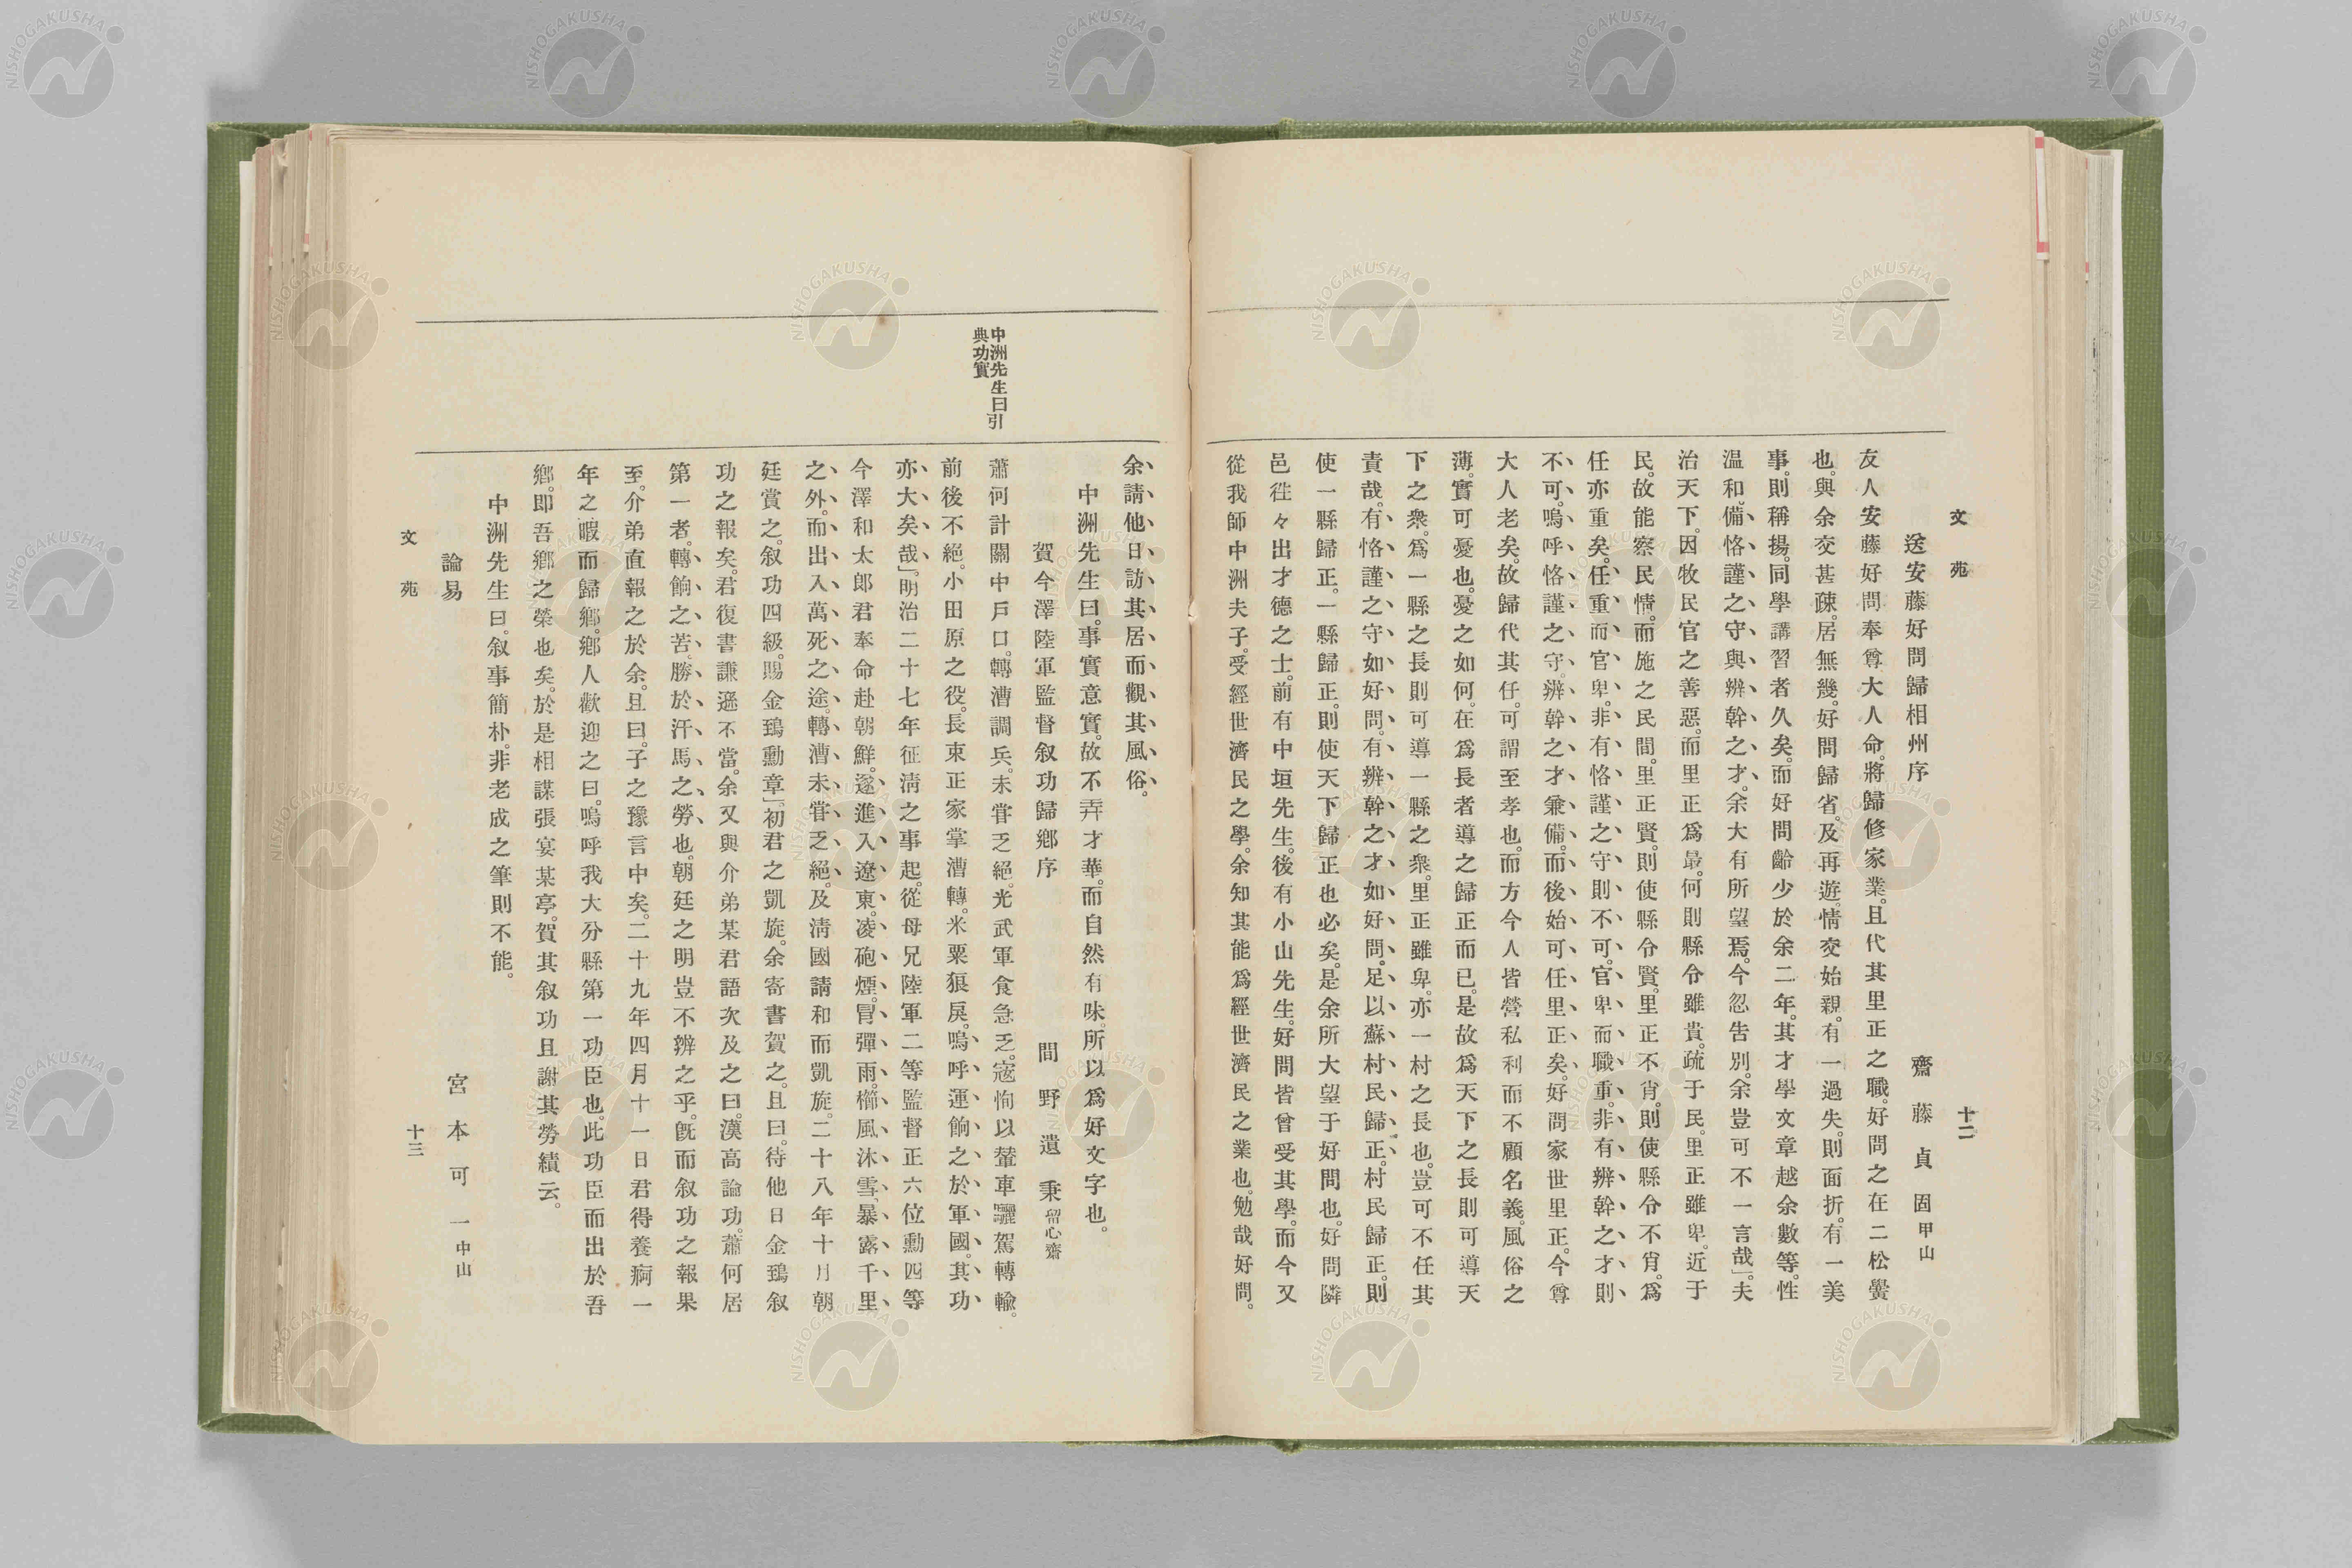 文苑
十二
送安藤好問歸相州序
齋藤貞固甲山
友人安藤好問奉尊大人命。將歸修家業。且代其里正之職。好問之在二松黌
也。與余交甚疎。居無幾。好問歸省。及再遊。情交始親。有一過失。則面折。有一美
事。則稱揚。同學講習者久矣。而好問齡少於余二年。其才學文章越余數等。性
温和。備恪謹之守、與辨幹之才、。余大有所望焉。今忽告別。余豈可不一言哉」。夫
治天下。因牧民官之善惡。而里正爲最。何則縣令雖貴。疏于民。里正雖卑。近于
民。故能察民情。而施之民間。里正賢。則使縣令賢。里正不肖。則使縣令不肖。爲
任亦重矣。任重而官卑。非有恪謹之守則不可。官卑而職重。非有辨幹之才、則
不可。嗚呼恪謹之守。辨幹之才兼備。而後始可任里正矣。好問家世里正。今尊
大人老矣。故歸代其任。可謂至孝也。而方今人皆營私利而不顧名義。風俗之
薄。實可憂也。憂之如何。在爲長者導之歸正而已。是故爲天下之長則可導天
下之衆。爲一縣之長則可導一縣之衆。里正雖卑。亦一村之長也。豈可不任其
責哉。有恪謹之守如好問。有辨幹之才如好問。足以蘇村民歸正。村民歸正。則
使一縣歸正。一縣歸正。則使天下歸正也必矣。是余所大望于好問也。好問隣
邑徃々出才德之士。前有中垣先生。後有小山先生。好問皆曾受其學。而今又
從我師中洲夫子。受經世濟民之學。余知其能爲經世濟民之業也。勉哉好問。
余請他日訪其居而觀其風俗。
中洲先生曰。事實意實。故不弄才華。而自然有味。所以爲好文字也。
賀今澤陸軍監督叙功歸鄕序
間野遺秉留心齋
中洲先生曰引
典功實
蕭何計關中戶口。轉漕調兵。未甞乏絕。光武軍食急乏。寇恂以輦車驪駕轉輸。
前後不絕。小田原之役。長束正家掌漕轉。米粟狼戾。嗚呼運餉之於軍國。其功
亦大矣哉」。明治二十七年征淸之事起。從母兄陸軍二等監督正六位勳四等
今澤和太郎君奉命赴朝鮮。遂進入遼東。凌砲煙。冒彈雨。櫛風沐雪、暴露千里
之外。而出入萬死之途。轉漕未甞乏絕。及淸國請和而凱旋。二十八年十月朝
廷賞之。叙功四級。賜金鵄勳章」。初君之凱旋。余寄書賀之。且曰。待他日金鵄叙
功之報矣。君復書謙遜不當。余又與介弟某君語次及之曰。漢高論功。蕭何居
第一者。轉餉之苦。勝於汗馬之勞也。朝廷之明豈不辨之乎。旣而叙功之報果
至。介弟直報之於余。且曰。子之豫言中矣。二十九年四月十一日君得養痾一
年之暇而歸鄕。鄕人歡迎之曰。嗚呼我大分縣第一功臣也。此功臣而出於吾
鄕。卽吾鄕之榮也矣。於是相謀張宴某亭。賀其叙功且謝其勞績云。
中洲先生曰。叙事簡朴。非老成之筆則不能。
論易
宮本可一中山
文苑
十三